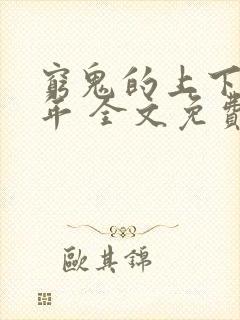 窮鬼的上下
年 全文免費
歐其錦